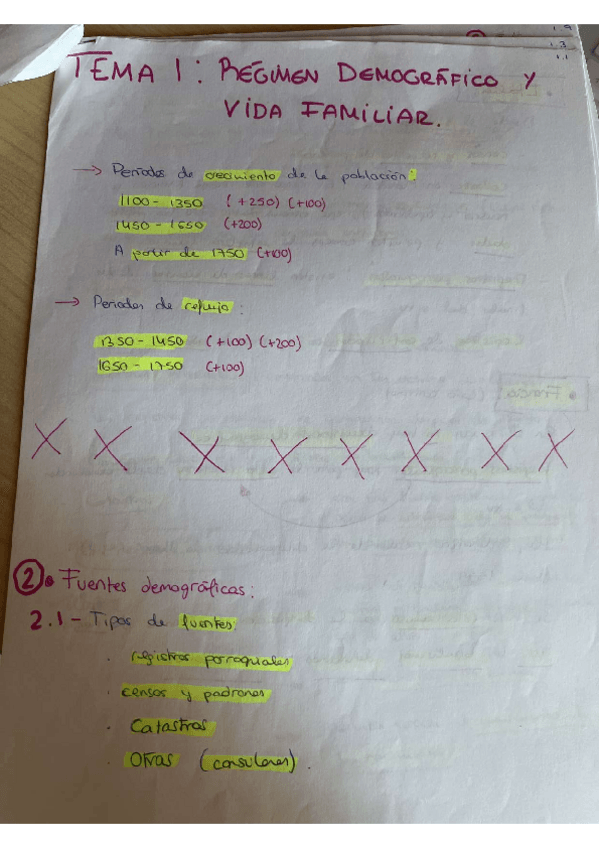 1.3
1.1
TEMA 1: RÉGIMEN DEMOGRÁFICO Y
VIDA FAMILIAR.
→ Períodos de crecimiento de la población:
1100 - 1350 (+250) (+100)
1450 - 1650 (+200)
A partir de 1750 (+100)
→ Periodos de reflujo:
1350 - 1450 (+100) (+200)
1650 - 1750 (+100)
X X X X X X X X
2. Fuentes demográficas:
2.1 - Tipos de fuentes
· registros parroquiales
· censos y padrones
· Catastros
· Otras (consulares).